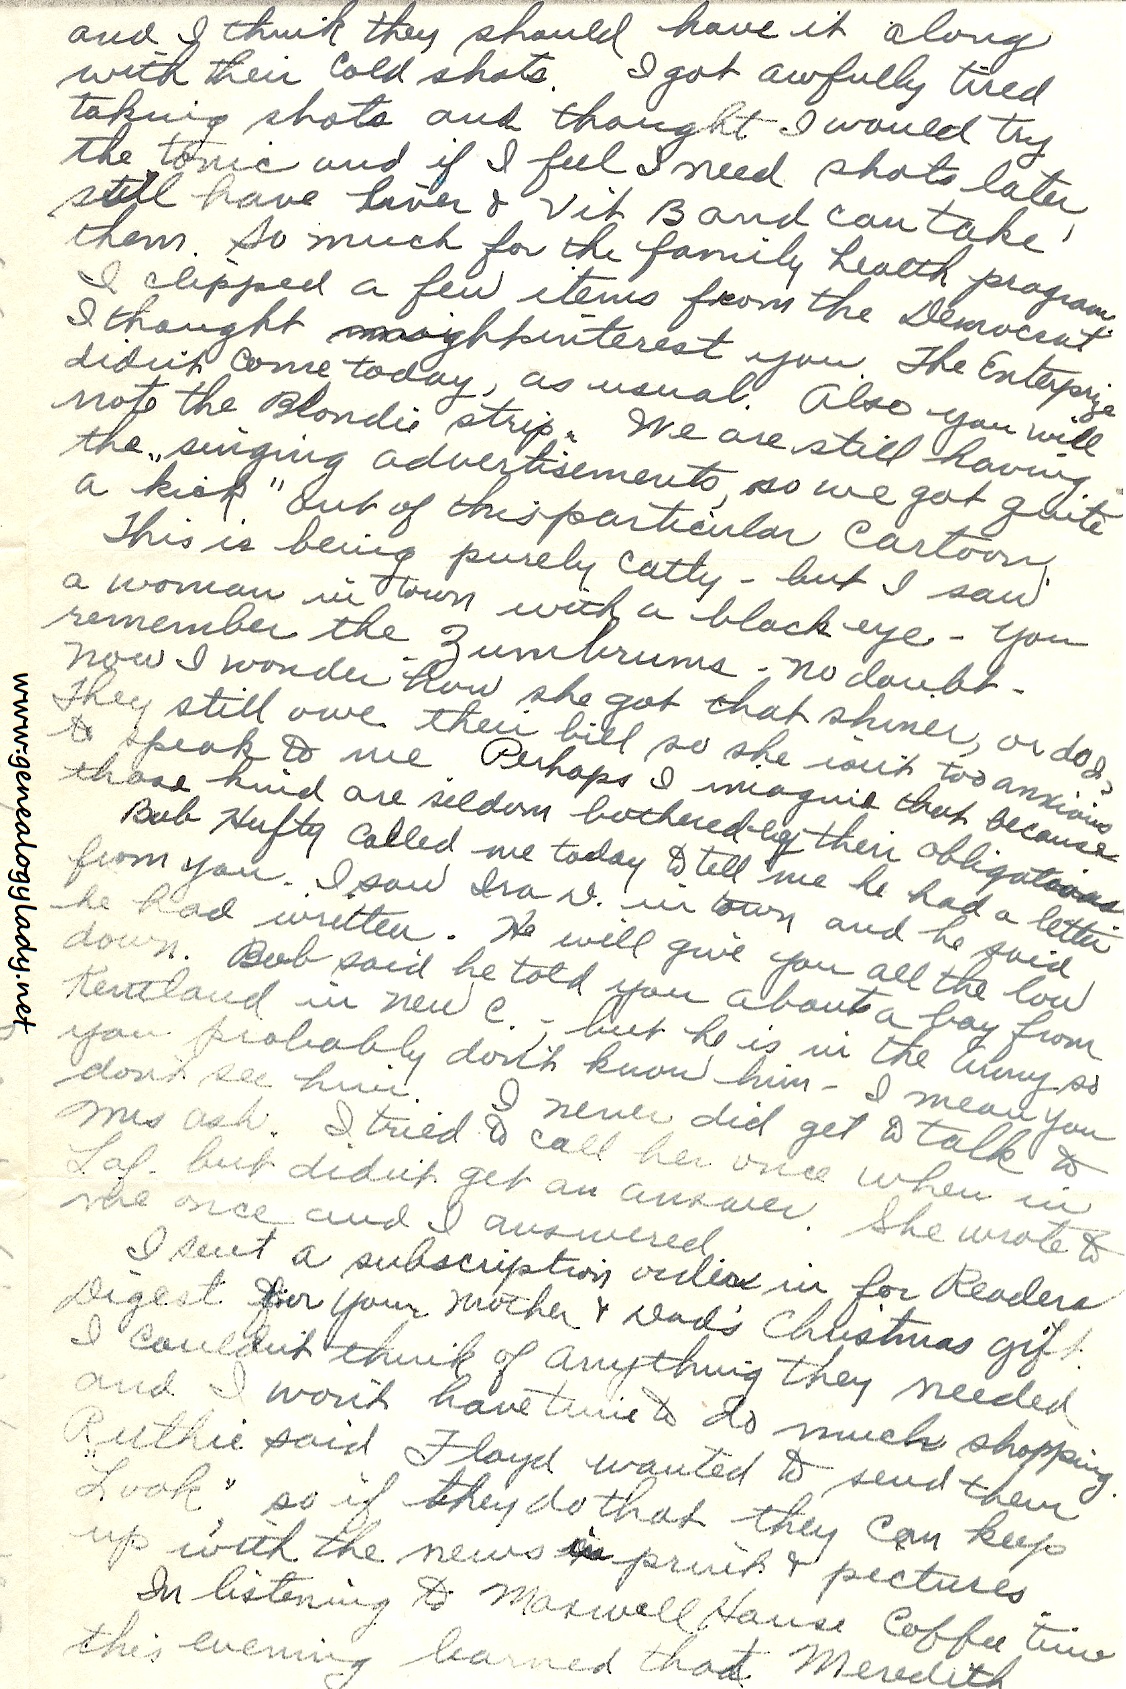 and I think they should have it along
with their cold shots. I got awfully tired
taking shots and thought I would try
the tonic and if I feel I need shots later,
still have Liver & Vit B and can take
them. So much for the family health program
I clipped a few items from the Democrat
I thought might interest you. The Enterprize
didn't come today, as usual. Also you will
note the Blondie strip. We are still having
the "singing advertisements, so we got quite
a kick" out of this particular cartoon.
This is being purely catty - but I saw
a woman in town with a black eye - You
remember the Zumbrums - no doubt -
now I wonder how she got that shiner, or do I?
They still owe their bill so she isn't too anxious
to speak to me Perhaps I imagine that because
those kind are seldom bothered by their obligations
Bob Hufty called me today to tell me he had a letter
from you. I saw Ira D. in town and he said
he had written. He will give you all the low
down. Bob said he told you about a boy from
Kentland in New C. - but he is in the Army so
you probably don't know him - I mean you
don't see him. I never did get to talk to
Mrs Ash. I tried to call her once when in
Laf. but didn't get an answer. She wrote to
me once and I answered.
I sent a subscription order in for Readers
Digest for your Mother & Dad's Christmas gift.
I couldn't think of anything they needed
and I won't have time to do much shopping.
Ruthie said Floyd wanted to send them
"Look", so if they do that they can keep
up with the news in print & pictures.
In listening to Maxwell House Coffee time
this evening learned that Meredith
www.genealogylady.net